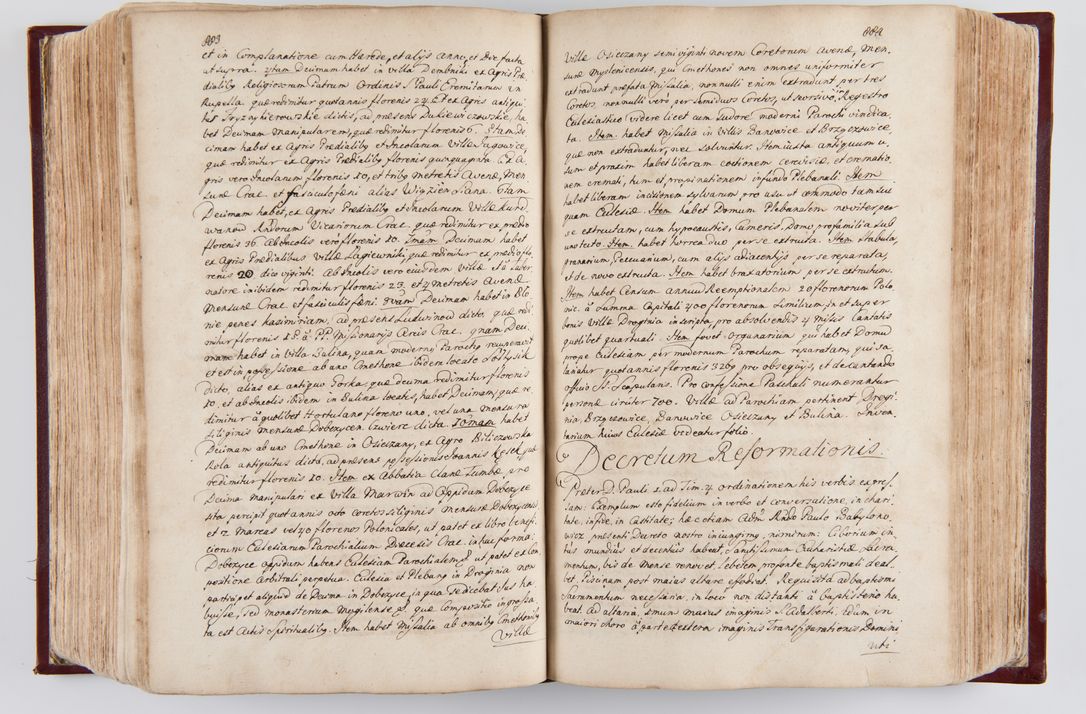 883
et in Complanatione cum Hærede, et alÿs anno, et die facta
ut supra. 7tam Decimam habet in villa Dembniki ex Agris Præ
dialibq Religiosorum Patrum Ordinis S. Pauli Eremitarum in
Rupella quæ redimitur quotannis florenis 24. Et ex Agris antiqui
tus dictis, ad præsens Dukiewiczowskie, ha
bet Decimam Manipularem, quæ redimitur florenis 6.
cimam habet ex Agris Prædialibq et Incolarum Villæ Jagowice,
quæ redimitur ex Agris Prædialibq florenis quinquaginta. Ex A
gris vero Incolarum florenis 50, et tribq metretis Avenæ, Men
suræ Crac. et fasciculo fæni alias Wiązien Siana. 9tam
Decimam habet, ex Agris Prædialibq et Incolarum Villæ Kurd
wanow Rndorum Vicariorum Crac. quæ redimitur ex, prædio
florenis 36. Ab Incolis vero florenis 20. Decimam habet
ex Agris Prædialibus Villæ Lagiewniki, quæ redimitur ex prædio flo
renis 20 dico viginti. Ab Incolis vero eiusdem Villæ et a Taber
natore inibidem redimitur florenis 23. et 4 metretis Avenæ
Mensuræ Crac. et fasciculis fæni. Decimam habet in Blo
nie penes Kasimiriam, ad præsens Ludwinow dicto, quæ redi
mitur florenis 18. a PP. Missionarÿs Arcis Crac. Deci
mam habet in Villa Bulina, quam modernq Parochq recuperavit
et est in possessione ab uno Cmethone ibidem locato Sołtysik
dicto, alias ex antiquo Gorka, quæ decima redimitur florenis
10, et ab Incolis ibidem in Bulina locatis, habet Decimam, quæ re
dimitur a quolibet Hortulano floreno uno, vel una mensura
siliginis mensuræ Dobczycen. Cwierc dicta. habet
Decimam ab uno Cmethone in Osieczany, ex Agro Biliczowska
Rola antiquitus dicta, ad præsens possessionis Joannis
redimitur florenis 20. Item ex Abbatia Claræ Tumbæ pro
Decima manipulari ex Villa Marwin ad Oppidum Dobczyce
sita percipit quot annis octo coretos siliginis mensuræ Dobczycensis
et 2 Marcas vel 40 florenos Polonicales, ut patet ex libro benefi
ciorum Eclesiarum Parochialium Diæcesis Crac. in hac forma:
Dobczyce oppidum habens Eclesiam Parochialem, ut patet ex Com
positione arbitrali perpetua. Eclesia et Plebanq in Droginia non
participet aliquid de Decima in Dobczyce, in qua se dicebat Jus ha
buisse, sed monasterium Mogilense, quæ Compositio ingrossa
ta est Actis Spiritualibq. Item habet Missalia ab omnibq Cmethonibq
Villæ
884
Villæ Osieczany semi viginti novem Coretorum Avenæ, Men
suræ Myslenicensis, qui Cmethones non omnes uniformiter
extradunt præfata Missalia, nonnulli enim extradunt per tres
Coretos, nonnulli vero per semiduos Coretos, ut seorsivo in Regestro
Eclesiastico videre licet cum sudore moderni Parochi vindica
ta. Item habet Missalia in Villis Banowice et Brzączowice,
quæ non extraduntur, nec solvuntur. Item iuxta antiquum u,
sum et praxim habet liberam coctionem cerevisiæ, et crematio,
nem cremati, tum et propinationem in fundo Plebanali. Item
habet liberam incisionem sylvarum pro usu et commodo tam suo
quam Eclesiæ. Item habet Domum Plebanalem noviter, per
se extructam, cum hypocaustis, cameris, Domo pro familia sub
uno tecto. Item habet horrea duo per se extructa. Item Stabula,
granarium, Pecuarium, cum alÿs adiacentÿs per se reparata,
et de novo extructa. Item habet braxatorium per se extructum.
Item habet Censum annuum Reemptionalem 20 florenorum Polo,
nic. à Summa Capitali 400 florenorum similium, in et super
bonis Villæ Droginia inscripta, pro absolvendis 4 missis Cantatis
quolibet quartuali. Item fovet Organarium qui habet Domum
prope Eclesiam per modernum Parochum reparatam, qui sa
lariatur quotannis florenis 32 gr 9 pro obsequÿs, et decantando
officio SS. Scapularis. Pro confessione Paschali numerantur
personæ circiter 700. Villæ ad Parochiam pertinent Drogi
nia, Brzączowice, Banowice Osieczany et Bulina. Inven
tarium huius Eclesiæ videatur folio.
Decretum Reformationis.
Præter D. Pauli 1. ad Tim. 4 ordinationem his verbis expres
sam: Exemplum esto fidelium in verbo et conversatione, in chari
tate, in fide, in castitate; hæc etiam Adm Rndo Paulo Babylono
wicz præsenti Decreto nostro iniungimq, nimirum: Ciborium in
tus mundiùs et decentiùs habeat, Sanctissimum Eucharistiæ Sacra
mentum, bis de Mense renovet, Lebetem pro fonte baptismali deal
bet, Piscinam post maius altare effodiat. Requisita ad baptismi
Sacramentum necessaria, in loco non distanti à baptisterio ha,
beat. Ad altaria, imum maius imaginis S. Adalberti, 2dum in
maiori choro à parte dextera imaginis Transfigurationis Domini
ubi